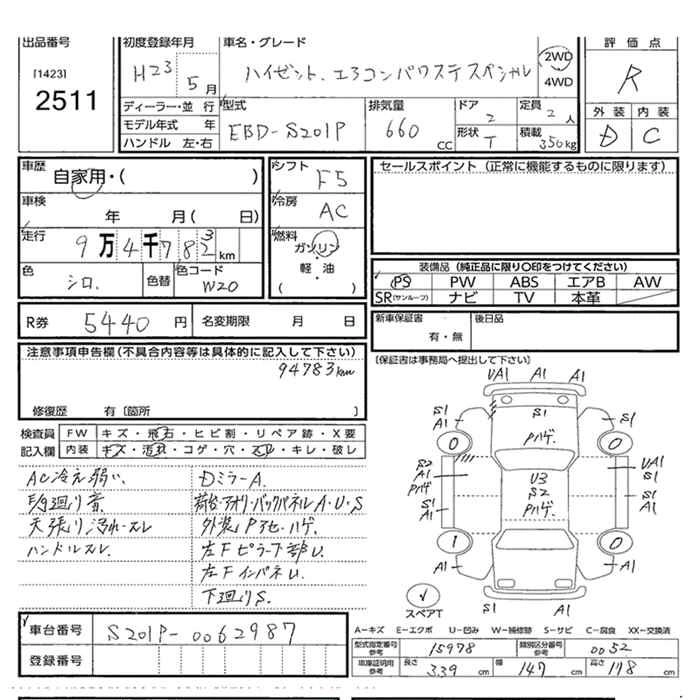 出品番号
[1423]
2511
初度登録年月
H23 5月
車名・グレード
ハイゼット、エアコンパワステスペシャル
2WD
4WD
評価点
R
外装 内装
D C
ディーラー・並行
モデル年式 年
ハンドル 左・右
型式
EBD-S201P
排気量
660 CC
ドア
2
形状
T
定員
2人
積載
350kg
車歴
自家用・( )
車検
年 月( 日)
走行
9万4千783km
色
シロ.
色替
色コード
W20
シフト
F5
冷房
AC
燃料
ガソリン
軽・油
( )
R券 5440円 名変期限 月 日
セールスポイント(正常に機能するものに限ります)
装備品(純正品に限り○印をつけてください)
PS PW ABS エアB AW
SR(サンルーフ) ナビ TV 本革
新車保証書
有・無
後日品
[保証書は事務局へ提出して下さい]
注意事項申告欄(不具合内容等は具体的に記入して下さい)
94783km
修復歴 有[箇所 ]
検査員
記入欄
FW キズ・飛石・ヒビ割・リペア跡・X要
内装 キズ・汚れ・コゲ・穴・スレ・キレ・破レ
AC冷え弱い.
足廻り音
天張り汚れ・スレ
ハンドルスレ.
Dミラー A.
荷台・アオリ・バックパネル A・U・S
外装Pアセ・ハゲ.
左Fピラー下部U
左Fインパネ U.
下廻りS.
UA1 A1 A1
S1
A1
S1
Pハゲ.
S1
A1
0
0
S2
A1
Pハゲ
UA1
S1
S1
A1
U3
S2
Pハゲ.
1
0
A1
A1
S1
A1
S1
A1
スペアT
A-キズ E-エクボ U-凹み W-補修跡 S-サビ C-腐食 XX-交換済
車台番号 S201P-0062987
登録番号
型式指定番号
参考
15978
類別区分番号
参考
0052
車庫証明用
参考
長さ 339 cm 幅 147 cm 高さ 178 cm